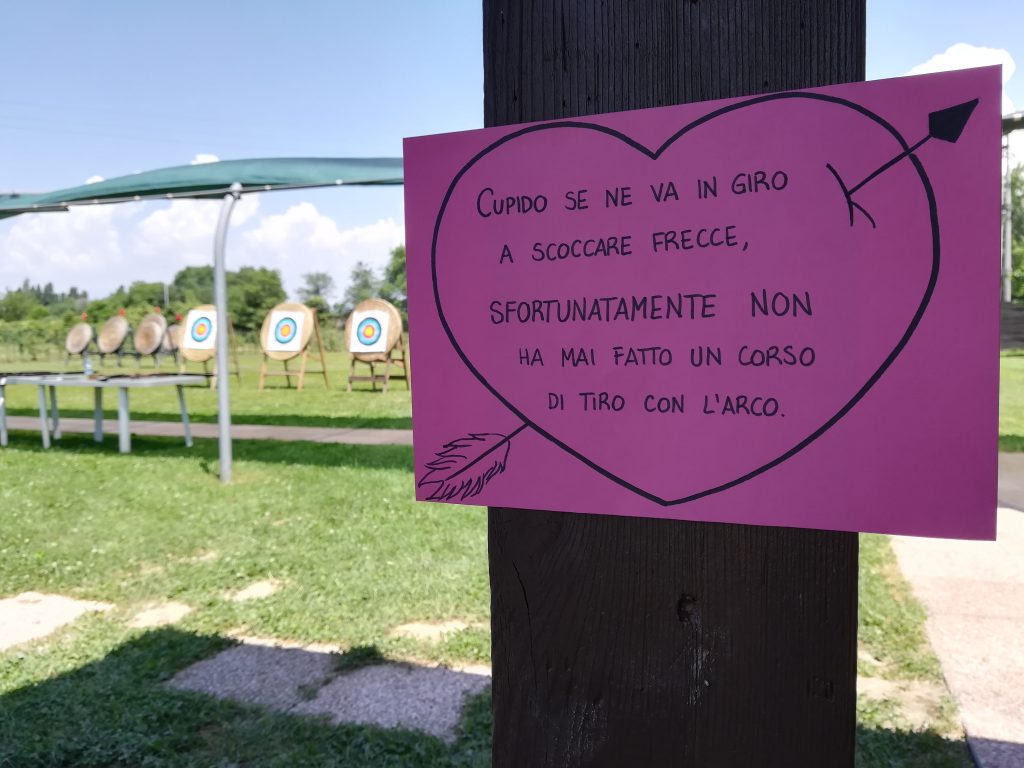 CUPIDO SE NE VA IN GIRO
A SCOCCARE FRECCE,
SFORTUNATAMENTE NON
HA MAI FATTO UN CORSO
DI TIRO CON L'ARCO.